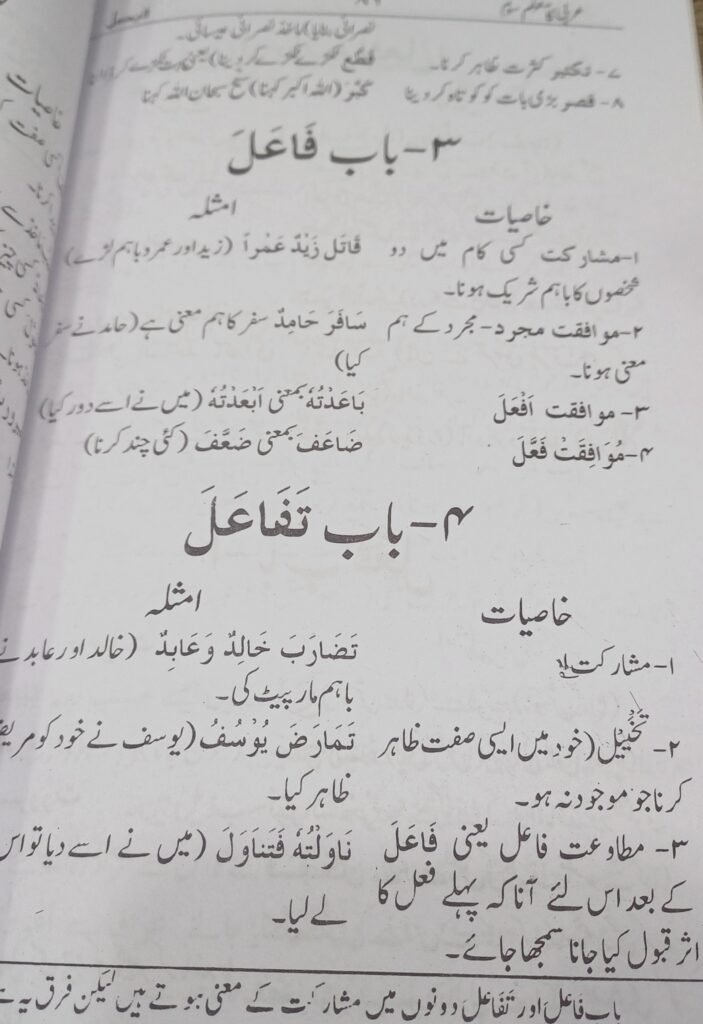 عربی کا معلم سوم
نصرانی بنانا) ماخذ نصرانی عیسائی۔
۷- تکثیر کثرت ظاہر کرنا۔ قَطَّعَ ٹکڑے ٹکڑے کر دینا) یعنی بہت ٹکڑے کر
۸- قصر بڑی بات کو کوتاہ کر دینا کَبَّرَ (اللہ اکبر کہنا) سَبَّحَ سبحان اللہ کہنا
۳- باب فَاعَلَ
خاصیات امثلہ
۱- مشارکت کسی کام میں دو قَاتَلَ زَیْدٌ عَمْراً (زید اور عمرو باہم لڑے)
شخصوں کا باہم شریک ہونا۔
۲- موافقت مجرد- مجرد کے ہم سَافَرَ حَامِدٌ سفر کا ہم معنی ہے (حامد نے سفر
معنی ہونا۔ کیا)
۳- موافقت اَفْعَلَ بَاعَدْتُهٗ بمعنی اَبْعَدْتُهٗ (میں نے اسے دور کیا)
۴- مُوَافِقَتْ فَعَّلَ ضَاعَفَ بمعنی ضَعَّفَ (کئی چند کرنا)
۴- باب تَفَاعَلَ
خاصیات امثلہ
۱- مشارکت تَضَارَبَ خَالِدٌ وَعَابِدٌ (خالد اور عابد نے
باہم مار پیٹ کی۔
۲- تَخْيِيْل (خود میں ایسی صفت ظاہر تَمَارَضَ يُوْسُفُ (یوسف نے خود کو مریض
کرنا جو موجود نہ ہو۔ ظاہر کیا۔
۳- مطاوعت فاعل یعنی فَاعَلَ نَاوَلْتُهٗ فَتَنَاوَلَ (میں نے اسے دیا تو اس
کے بعد اس لئے آنا کہ پہلے فعل کا لے لیا۔
اثر قبول کیا جانا سمجھا جائے۔
باب فاعَلَ اور تَفَاعَلَ دونوں میں مشارکت کے معنی ہوتے ہیں لیکن فرق یہ ہے